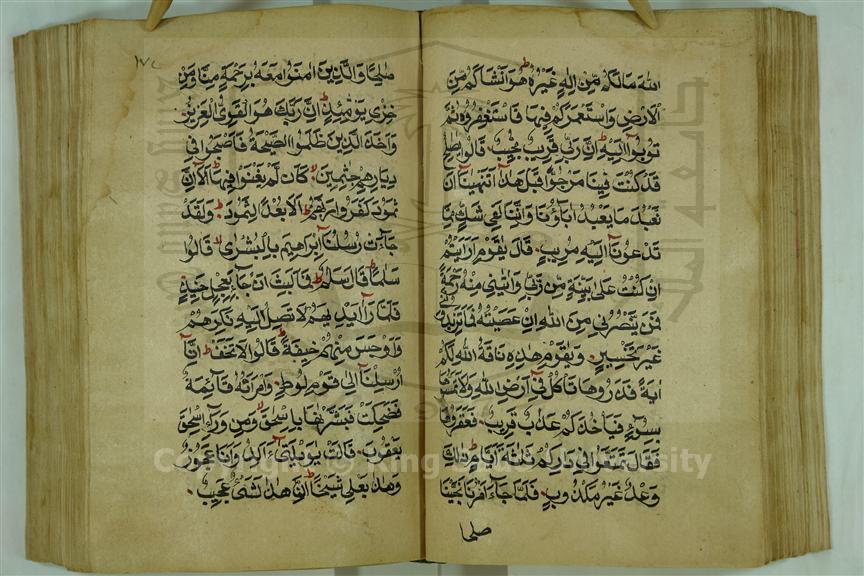 الله مالكم من اله غيره هو انشاكم من
الارض واستعمركم فيها فاستغفروه ثم
توبوا اليه ان ربي قريب مجيب قالوا يصلح
قد كنت فينا مرجوا قبل هذا اتنهينا ان
نعبد ما يعبد اباؤنا واننا لفي شك مما
تدعونا اليه مريب قال يقوم ارايتم
ان كنت على بينة من ربي واتيني منه رحمة
فمن ينصرني من الله ان عصيته فما تزيدونني
غير تخسير ويقوم هذه ناقة الله لكم
اية فذروها تاكل في ارض الله ولا تمسوها
بسوء فياخذكم عذاب قريب فعقروها
فقال تمتعوا في داركم ثلثة ايام ذلك
وعد غير مكذوب فلما جاء امرنا نجينا
صلحا
صلحا والذين امنوا معه برحمة منا ومن
خزي يومئذ ان ربك هو القوي العزيز
واخذ الذين ظلموا الصيحة فاصبحوا في
ديارهم جثمين كان لم يغنوا فيها الا ان
ثمود كفروا ربهم الا بعدا لثمود ولقد
جاءت رسلنا ابراهيم بالبشرى قالوا
سلما قال سلم فما لبث ان جاء بعجل حنيذ
فلما رآ ايديهم لا تصل اليه نكرهم
واوجس منهم خيفة قالوا لا تخف انا
ارسلنا الى قوم لوط وامراته قائمة
فضحكت فبشرنها باسحق ومن وراء اسحق
يعقوب قالت يويلتى ءالد وانا عجوز
وهذا بعلي شيخا ان هذا لشئ عجيب
Copyright © King Saud University